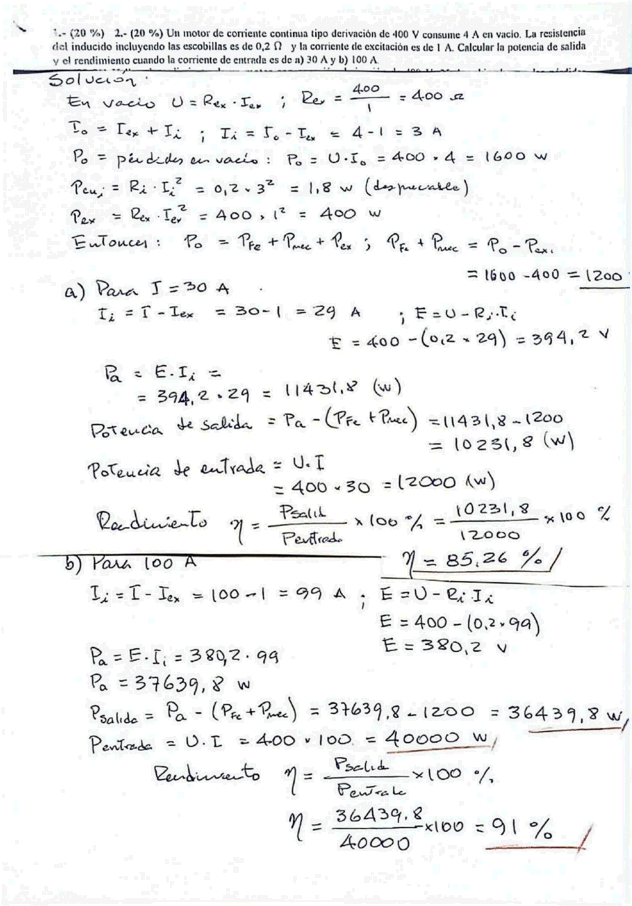 1.- (20 %) 2.- (20 %) Un motor de corriente continua tipo derivación de 400 V consume 4 A en vacío. La resistencia
del inducido incluyendo las escobillas es de 0,2 Ω y la corriente de excitación es de 1 A. Calcular la potencia de salida
y el rendimiento cuando la corriente de entrada es de a) 30 A y b) 100 A.
Solución:
En vacío U = Rex · Iex ; Rex = 400/1 = 400 Ω
Io = Iex + Ii ; Ii = Io - Iex = 4 - 1 = 3 A
Po = pérdidas en vacío : Po = U·Io = 400 × 4 = 1600 w
Pcui = Ri · Ii² = 0,2 × 3² = 1,8 w (despreciable)
Pex = Rex · Iex² = 400 × 1² = 400 w
Entonces: Po = PFe + Pmec + Pex ; PFe + Pmec = Po - Pex.
= 1600 - 400 = 1200
a) Para I = 30 A
Ii = I - Iex = 30 - 1 = 29 A ; E = U - Ri·Ii
E = 400 - (0,2 × 29) = 394,2 V
Pa = E·Ii =
= 394,2 × 29 = 11431,8 (w)
Potencia de salida = Pa - (PFe + Pmec) = 11431,8 - 1200
= 10231,8 (w)
Potencia de entrada = U.I
= 400 × 30 = 12000 (w)
Rendimiento η = Psalid/Pentrada × 100 % = 10231,8/12000 × 100 %
η = 85,26 %/
b) Para 100 A
Ii = I - Iex = 100 - 1 = 99 A ; E = U - Ri Ii
E = 400 - (0,2 × 99)
E = 380,2 v
Pa = E·Ii = 380,2 · 99
Pa = 37639,8 w
Psalida = Pa - (PFe + Pmec) = 37639,8 - 1200 = 36439,8 w/
Pentrada = U.I = 400 × 100 = 40000 w/
Rendimiento η = Psalid/Pentrada × 100 %
η = 36439.8/40000 × 100 = 91 % /